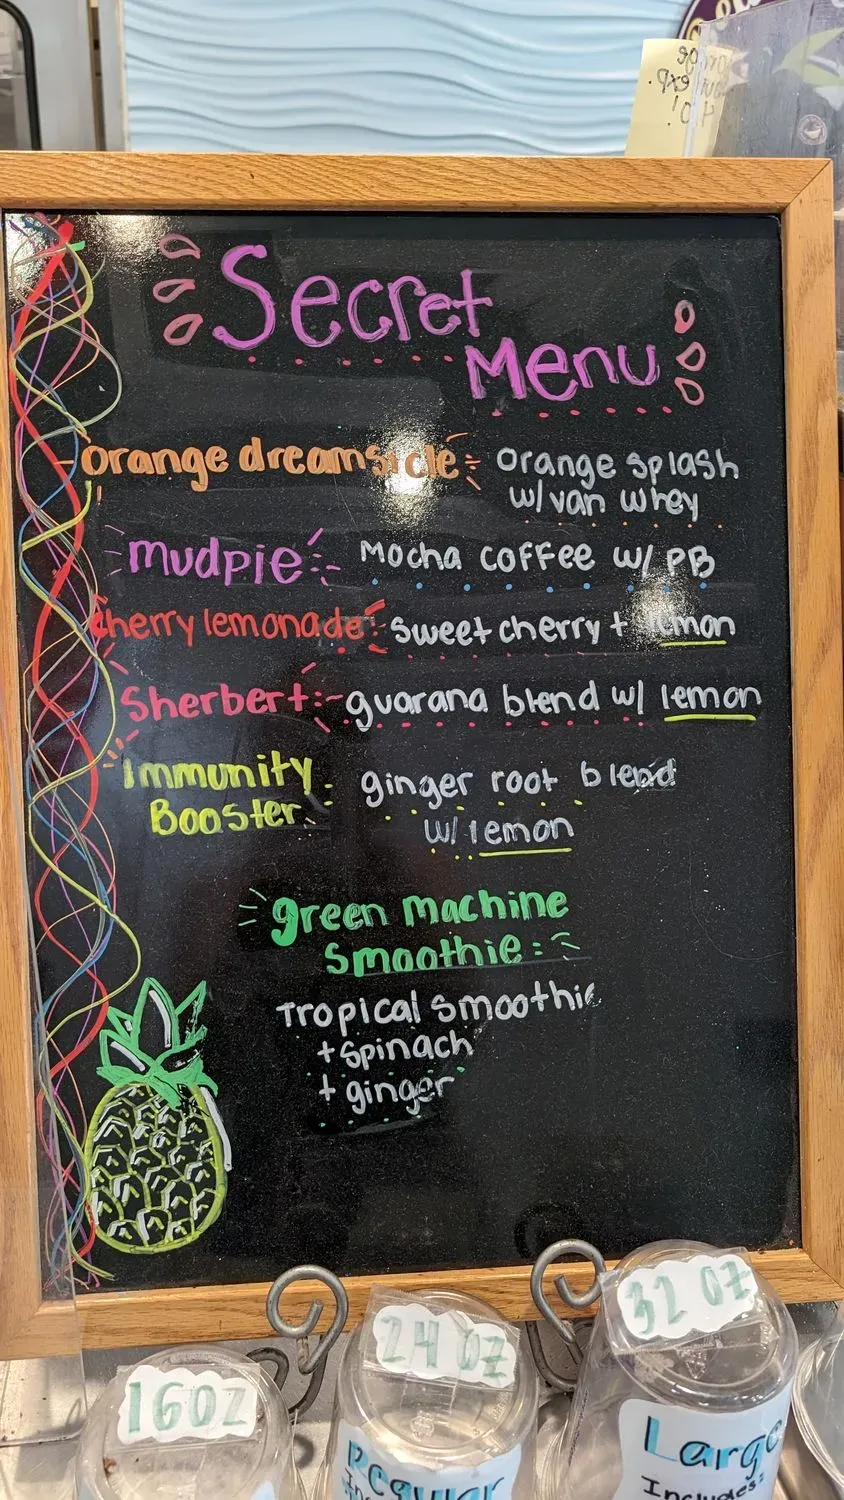 Secret
Menu
orange dreamsicle: orange splash
w/ van whey
mudpie: Mocha coffee w/ PB
cherry lemonade: sweet cherry + lemon
Sherbert: guarana blend w/ lemon
Immunity
Booster: ginger root blend
w/ lemon
green machine
smoothie:
Tropical smoothie
+ spinach
+ ginger
16oz
24 oz
32 oz
Regular
Large
Includes: